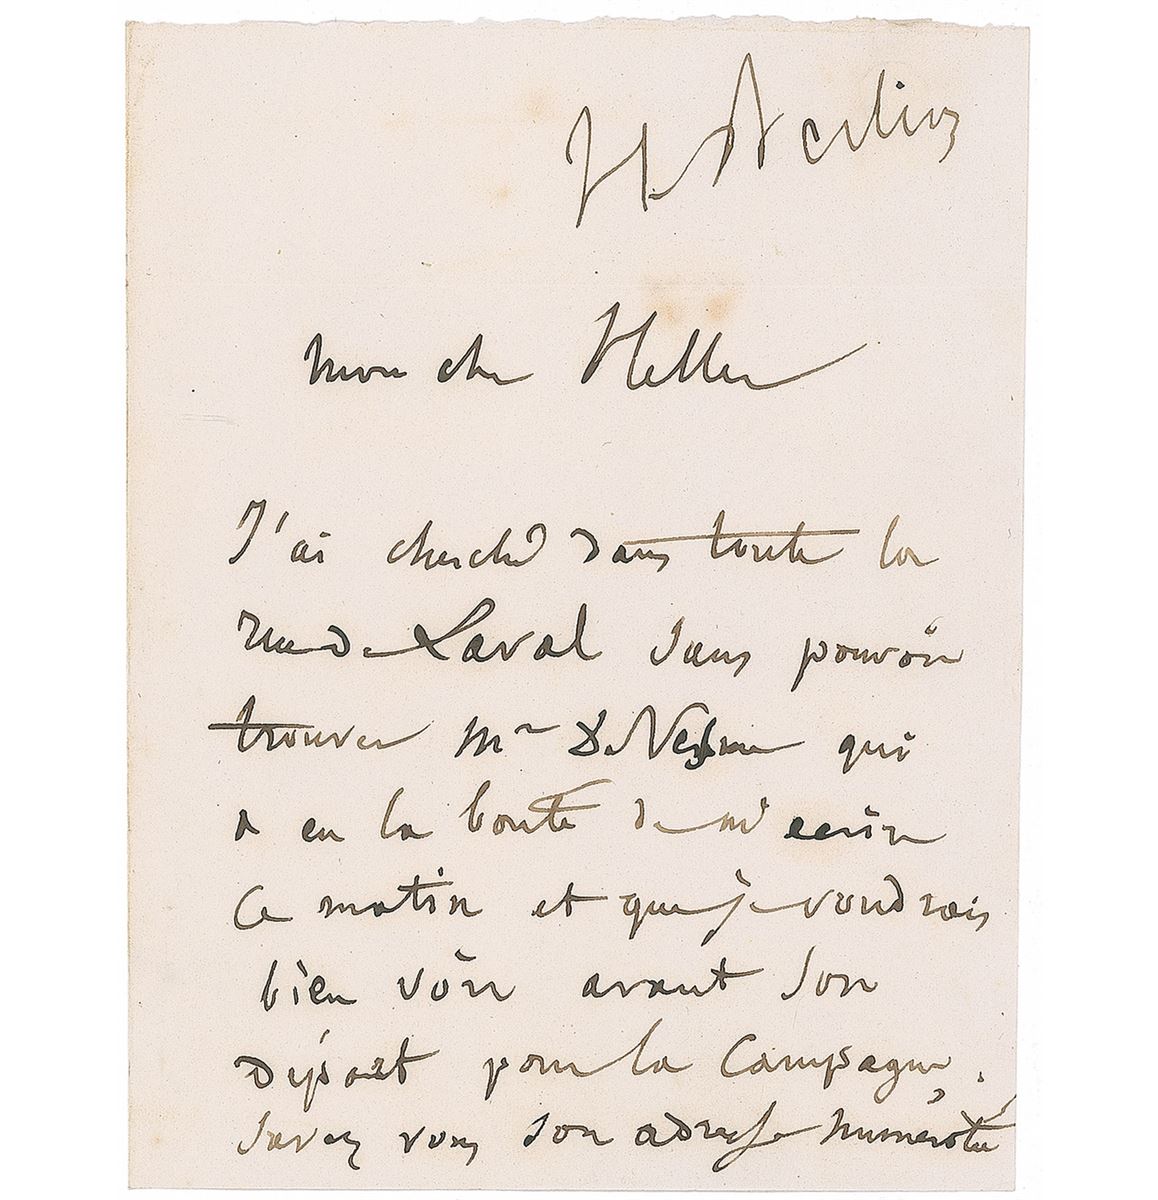 H. Berlioz
Mon cher Heller
J'ai cherché dans toute la
rue de Laval sans pouvoir
trouver Mr De
qui
a eu la bonté de m'ecrire
ce matin et que je voudrais
bien voir avant son
départ pour la Campagne ;
Savez vous son adresse numérotée